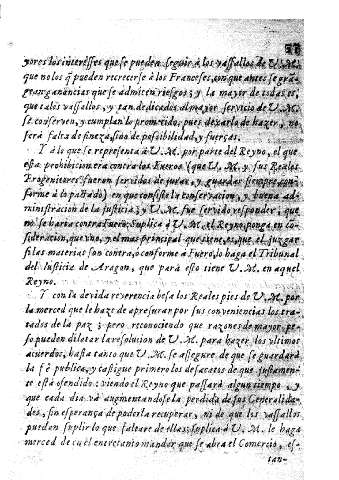 yores los interésses que se pueden seguir à los vassallos de V. M.
que no los q̃ pueden recrecerse à los Franceses, con que antes se
gran ganancias que se admiten riesgos; y la mayor de todas es,
que tales vassallos, y tan dedicados al mayor servicio de V. M.
se conserven, y cumplan lo prometido; pues dexarlo de hazer, no
serà falta de fineza, sino de possibilidad, y fuerças.
Y à lo que se representa à V. M. por parte del Reyno, el que
esta prohibicion era contra los Fueros (que V. M. y sus Reales
Progenitores fueron servidos de jurar, y guardar siempre con-
forme à lo pactado) en que consiste la conservacion, y buena ad-
ministracion de la justicia; y V. M. fue servido responder, que
no se haria contra Fuero: Suplica à V. M. el Reyno ponga en co-
sideracion, que vno, y el mas principal que tiene, es, que el juzgar
si las materias son contra, ò conforme à Fuero, lo haga el Tribunal
del Iusticia de Aragon, que para esto tiene V. M. en aquel
Reyno.
Y con la devida reverencia besa los Reales pies de V. M. por
la merced que le haze de apresurar por sus conveniencias los tra-
tados de la paz; pero reconociendo que razones de mayor pe-
so pueden dilatar la resolucion de V. M. para hazer los vltimos
acuerdos, hasta tanto que V. M. se assegure de que se guardarà
la fè publica, y castigue primero los desacatos de que justamen-
te està ofendido: viendo el Reyno que passarà algun tiempo, y
que cada dia và augmentandose la perdida de sus Generalida-
des, sin esperança de poderla recuperar, ni de que los vassallos
puedan suplir lo que faltare de ellas; suplica à V. M. le haga
merced de en el entretanto mandar que se abra el Comercio, es-
tan-